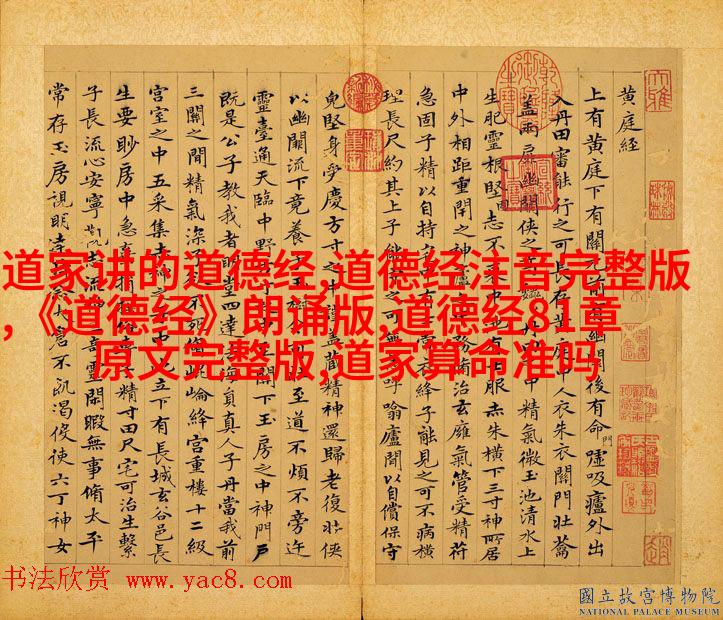 黃庭經
上有黃庭下有關元前有幽闕後有命門噓吸廬外出
入丹田審能行之可長存黃庭中人衣朱衣關門壯籥
蓋兩扉幽闕俠之高巍丹田之中精氣微玉池清水上
生肥靈根堅志不衰中池有士服赤朱橫下三寸神所居
中外相距重閉之神廬之中務脩治玄廱氣管受精符
急固子精以自持宅中有士常衣絳子能見之可不病橫
理長尺約其上子能守之可無恙呼噏廬間以自償保守
皃堅身受慶方寸之中謹蓋藏精神還歸老復壯俠
以幽闕流下竟養子玉樹令可杖至道不煩不旁迕
靈臺通天臨中野方寸之中至關下玉房之中神門戶
既是公子教我者明堂四達法海員真人子丹當我前
三關之間精氣深子欲不死脩崐崘絳宮重樓十二級
宮室之中五采集赤神之子中池立下有長城玄谷邑長
生要眇房中急棄捐淫俗專子精寸田尺宅可治生繫
子長流心安寧觀志流神三奇靈閒暇無事脩太平
常存玉房視明達時念大倉不飢渴役使六丁神女
道家讲的道德经,道德经注音完整版
,《道德经》朗诵版,道德经81章
原文完整版,道家算命准吗
书法欣赏 www.yac8.com
國立故宮博物院
NATIONAL PALACE MUSEUM